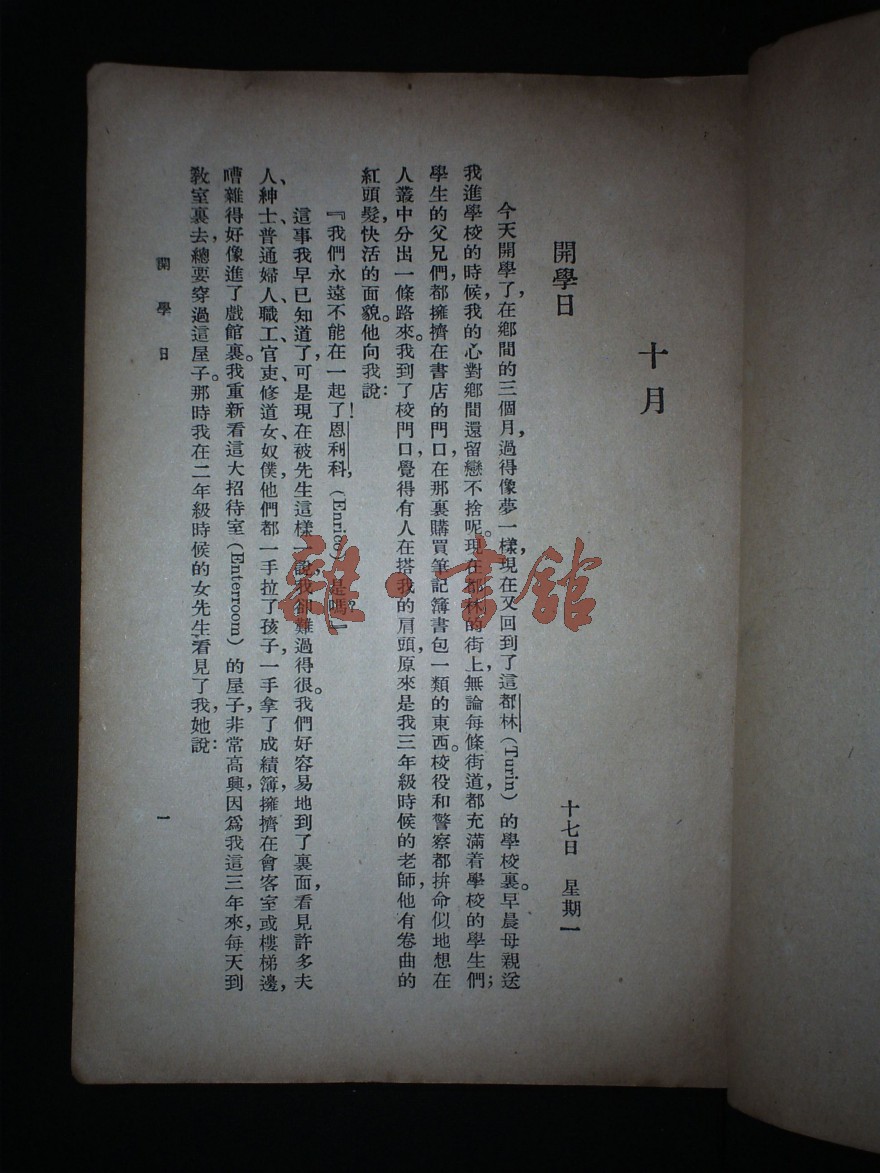 十月
開學日
十七日　星期一
今天開學了，在鄉間的三個月，過得像夢一樣，現在又回到了這都林（Turin）的學校裏。早晨母親送
我進學校的時候，我的心對鄉間還留戀不捨呢。現在都林的街上，無論每條街道，都充滿着學校的學生們；
學生的父兄們，都擁擠在書店的門口，在那裏購買筆記簿書包一類的東西。校役和警察都拚命似地想在
人叢中分出一條路來。我到了校門口，覺得有人在搭我的肩頭，原來是我三年級時候的老師，他有卷曲的
紅頭髮，快活的面貌。他向我說：
『我們永遠不能在一起了！恩利科，（Enrico）是嗎？』
這事我早已知道了，可是現在被先生這樣一說，我卻難過得很。我們好容易地到了裏面，看見許多夫
人、紳士、普通婦人、職工、官吏、修道女、奴僕，他們都一手拉了孩子，一手拿了成績簿，擁擠在會客室或樓梯邊，
嘈雜得好像進了戲館裏。我重新看這大招待室（Enterroom）的屋子，非常高興，因爲我這三年來，每天到
教室裏去，總要穿過這屋子。那時我在二年級時候的女先生看見了我，她說：
開學日
一
雜·書館